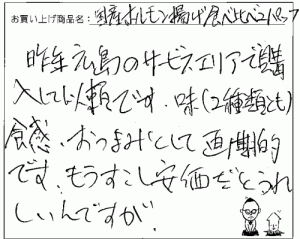 お買い上げ商品名：国産ホルモン揚げ食べ比べ2パック
昨年広島のサービスエリアで購
入して以頼です。味(2種類とも)
食感、おつまみとして画期的
です。もうすこし安価だとうれ
しいんですが、